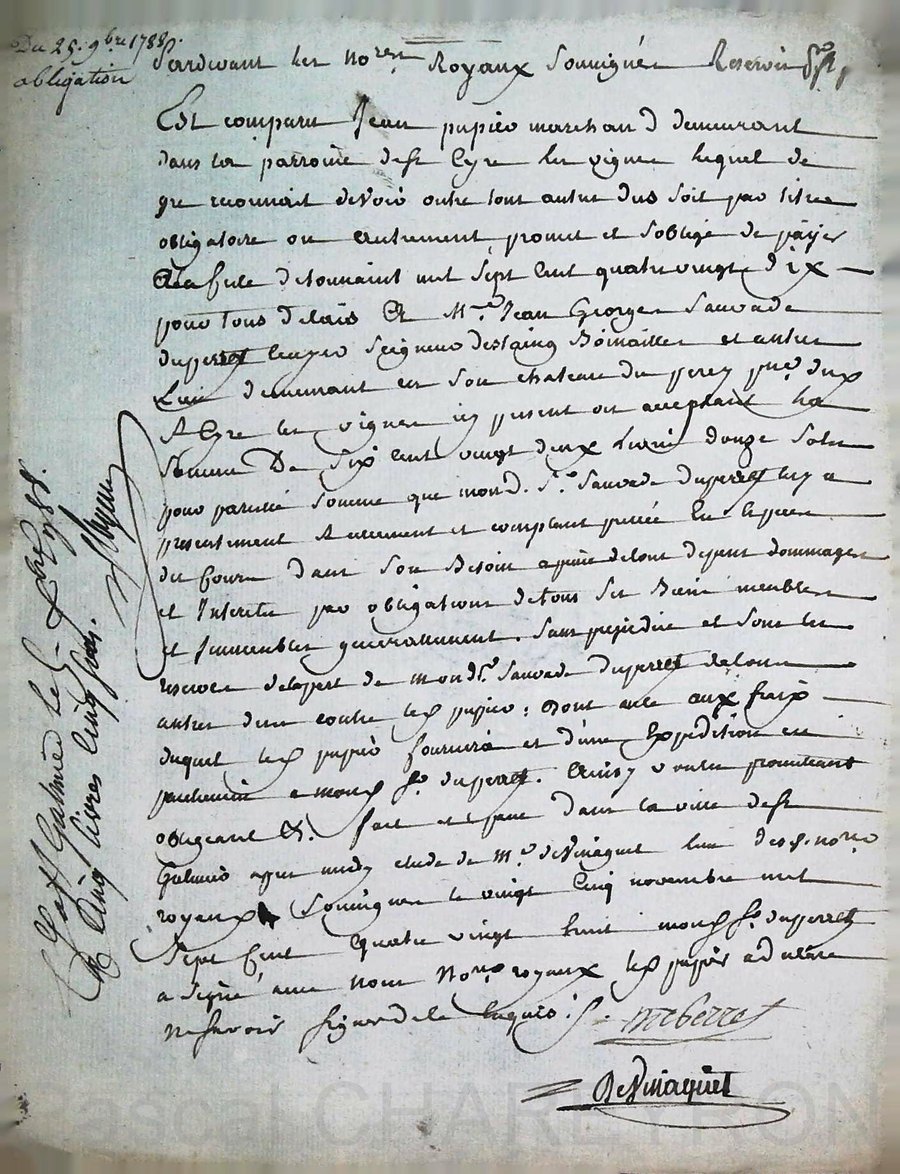 Du 25. 9bre 1788.
obligation
Pardevant les nores Royaux Soussignés Reservés
Est comparu Jean pupier marchand demeurant
dans la parroisse de st Cyre les vignes lequel de
gre reconnait devoir outre tout autre dus soit par titre
obligatoire ou autrement promet et soblige de payer
a la fete de toussaint mil sept cent quatre vingt dix
pour tous delais a Mre Jean George Sauvade
duperret Seigneur destaing Boirailles et autres
Lieux demeurant en son chateau du perey psse dud
st Cyre les vignes icy present et acceptant la
somme De six cent vingt deux livres douze sols
pour pareille somme que mond. sr. Sauvade duperret luy a
presentement et comptant pretée en especes
de Cours dans son Besoin a peine de tout depens dommages
et Interets par obligations de tous ses Biens meubles
et Immeubles generallement. sans prejudice et sous les
reserves de la part de mondt. sr. Sauvade duperret de tous
autres dus contre led pupier; dont acte aux fraix
duquel led pupier fournira et d'une Expedition en
parchemin a mond sr. duperret. Ainsy voulu promettant
obligeant &. fait et passé dans la ville de st
Galmier apres midy etude de Me. deViñaquet lun desd. nores
royaux Soussignes le vingt Cinq novembre mil
Sept Cent quatre vingt huit mond sr. duperret
a signé avec nous Nores royaux led pupier a declaré
ne savoir signer de ce Enquis.
DeViñaquet
a st Galmier le 5 Xbre 1788.
R Cinq livres cinq sous.
Pascal CHAREYRON